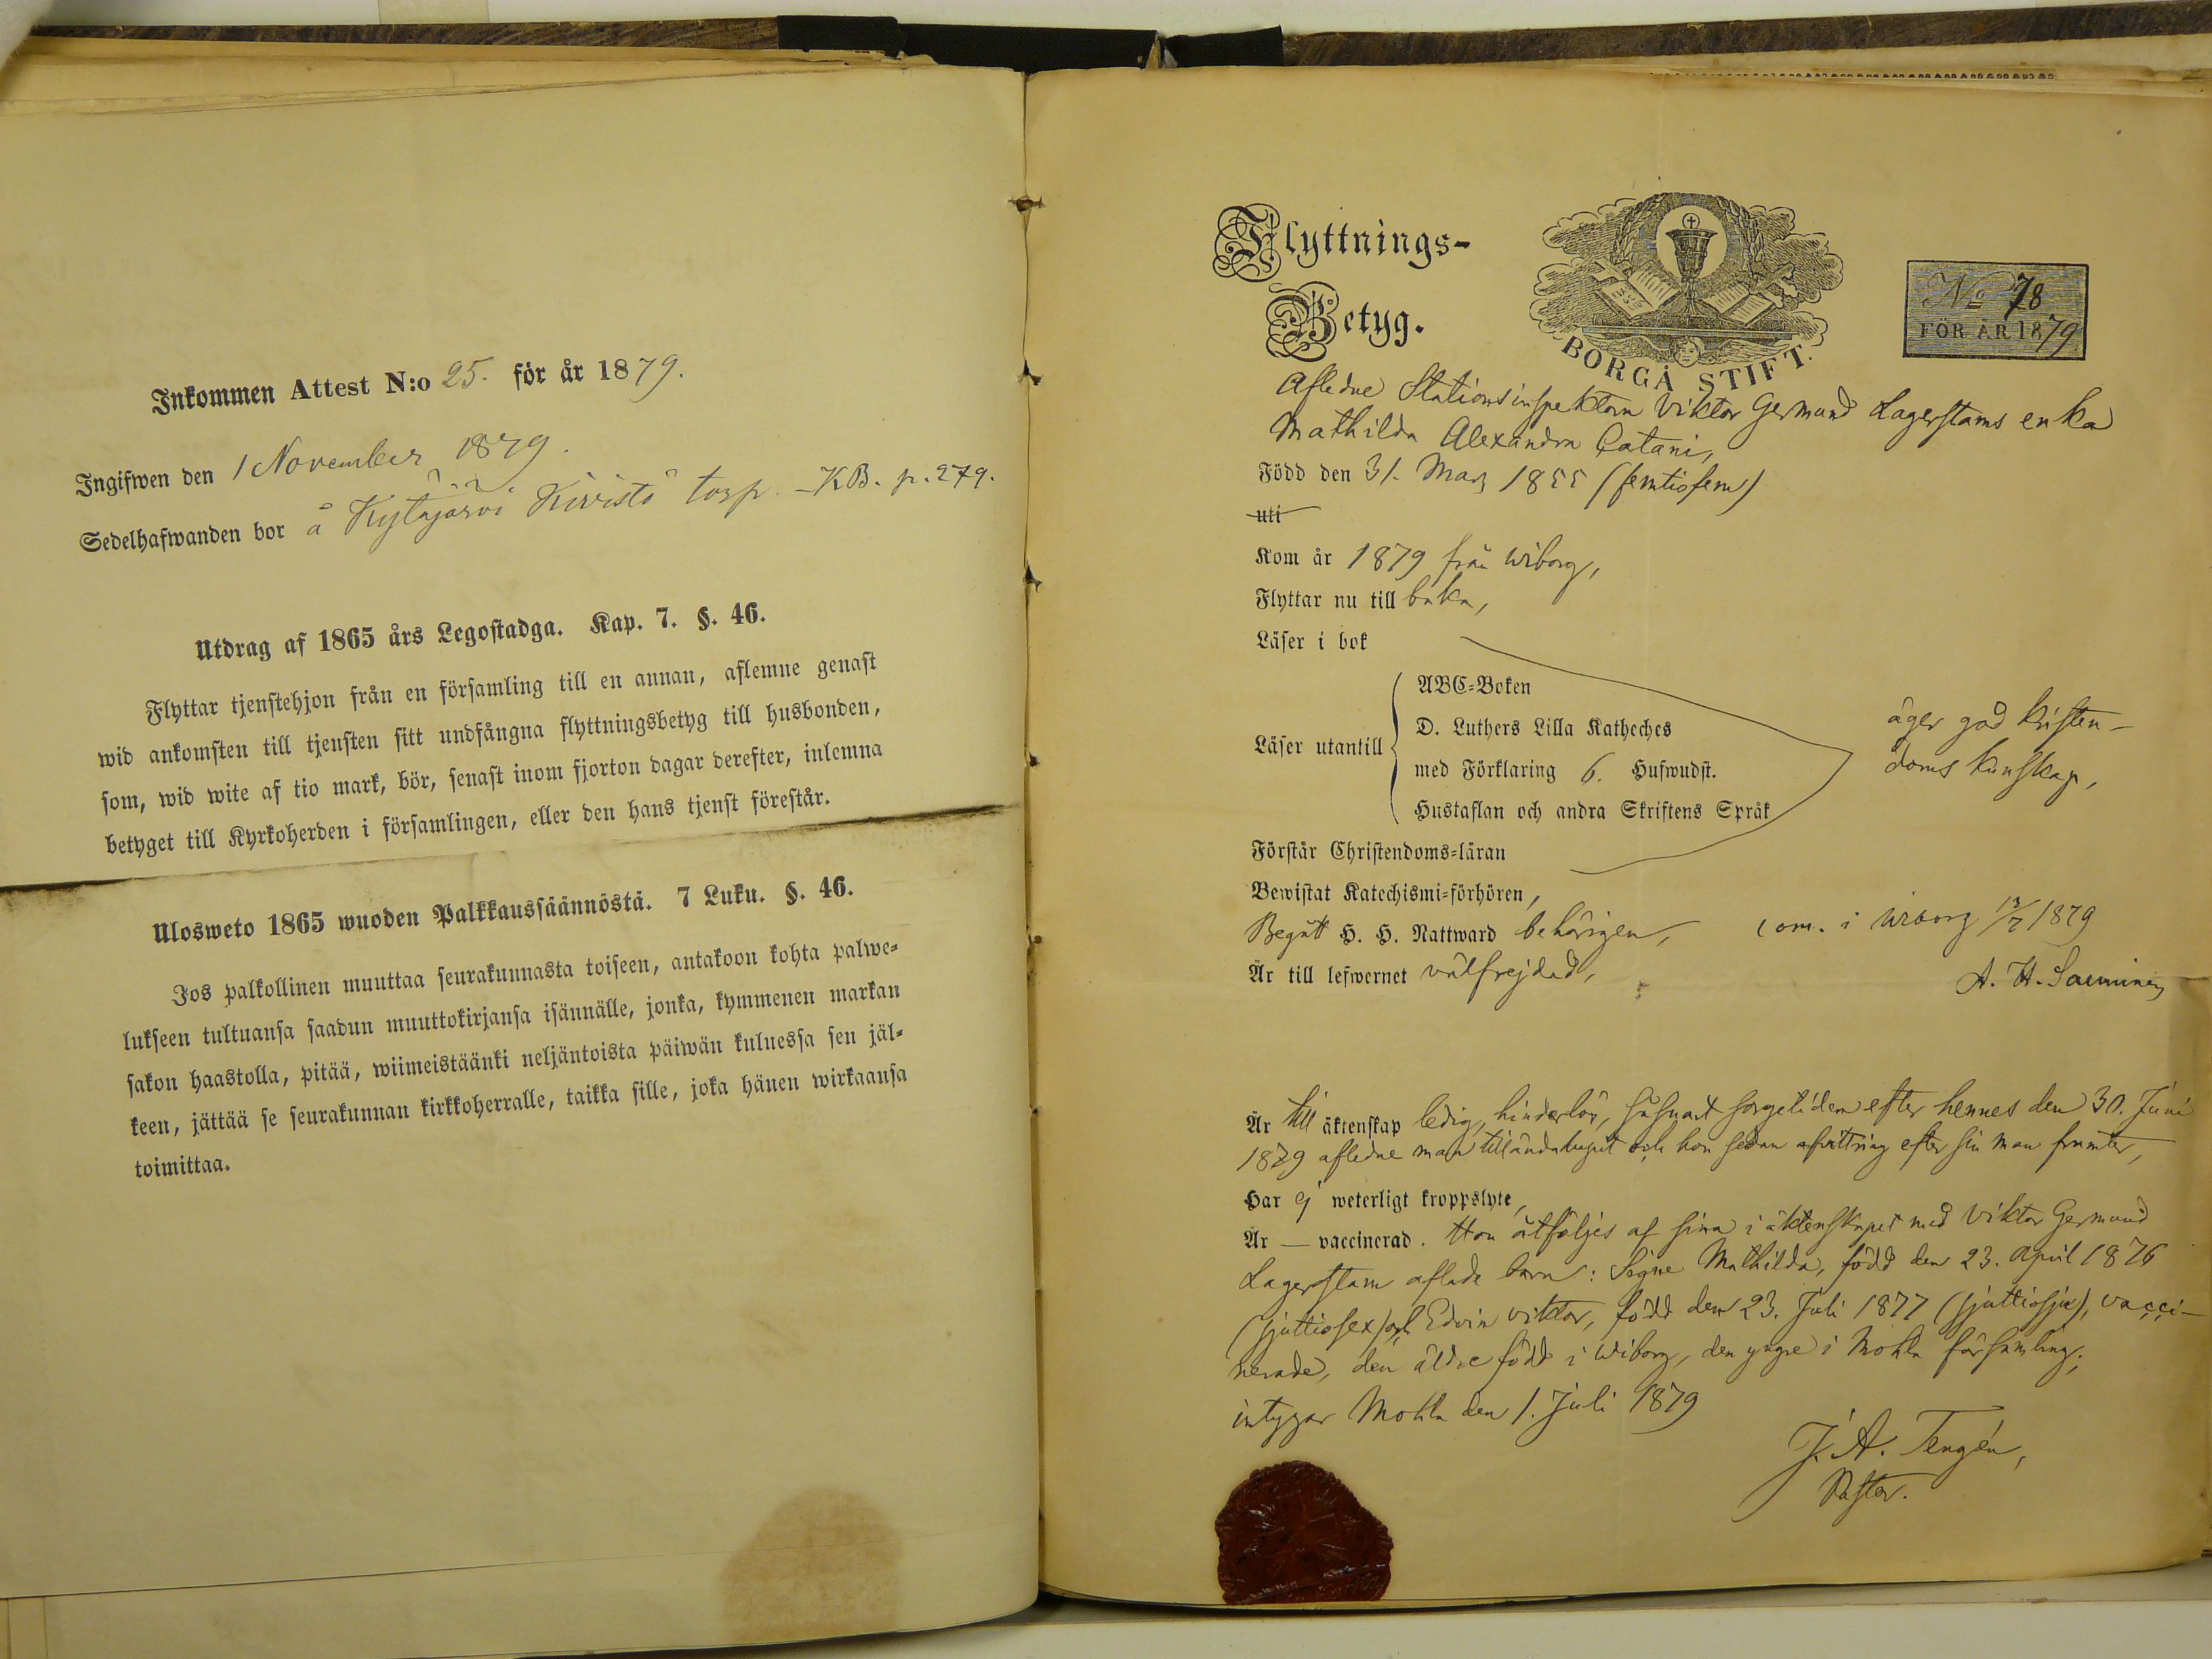 Inkommen Attest N:o 25. för år 1879.
Ingifwen den 1 November 1879.
Sedelhafwanden bor å Kytäjärvi Kivistö torp. - KB. p. 279.
Utdrag af 1865 års Legostadga. Kap. 7. §. 46.
Flyttar tjenstehjon från en församling till en annan, aflemne genast
wid ankomsten till tjensten sitt undfångna flyttningsbetyg till husbonden,
som, wid wite af tio mark, bör, senast inom fjorton dagar derefter, inlemna
betyget till Kyrkoherden i församlingen, eller den hans tjenst förestår.
Ulosweto 1865 wuoden Palkkaussäännöstä. 7 Luku. §. 46.
Jos palkollinen muuttaa seurakunnasta toiseen, antakoon kohta palwe-
lukseen tultuansa saadun muuttokirjansa isännälle, jonka, kymmenen markan
sakon haastolla, pitää, wiimeistäänki neljäntoista päiwän kuluessa sen jäl-
keen, jättää se seurakunnan kirkkoherralle, taikka sille, joka hänen wirkaansa
toimittaa.
Flyttnings-
Betyg.
BORGÅ STIFT.
No 78
FÖR ÅR 1879
Aflidne Stationsinspektorn Viktor Germund Lagerstams enka
Mathilda Alexandra Catani,
Född den 31. Marz 1855 (femtiofem)
uti
Kom år 1879 från Wiborg,
Flyttar nu till baka,
Läser i bok
Läser utantill
ABC-Boken
D. Luthers Lilla Katheches
med Förklaring 6. Hufwudst.
Hustaflan och andra Skriftens Språk
äger god kristen-
doms kunskap,
Förstår Christendoms-läran
Bewistat Katechismi-förhören,
Begått H. H. Nattward behörigen, com. i Wiborg 13/7 1879
Är till lefwernet välfrejdad,
Är till äktenskap ledig, hinderlös, såsnart sorgetiden efter hennes den 30. Juni
1879 aflidne man tilländalupit och hon sedan afvittring efter sin man
Har ej weterligt kroppslyte,
Är — vaccinerad. Hon åtföljes af sina i äktenskapet med Viktor Germund
Lagerstam aflade barn: Signe Mathilda, född den 23. April 1876
(sjuttiosex) och Edvin Viktor, född den 23. Juli 1877 (sjuttiosju), vacci-
nerade, den äldre född i Wiborg, den yngre i Mohla församling;
intygar Mohla den 1. Juli 1879
J. A. Tengén,
Pastor.